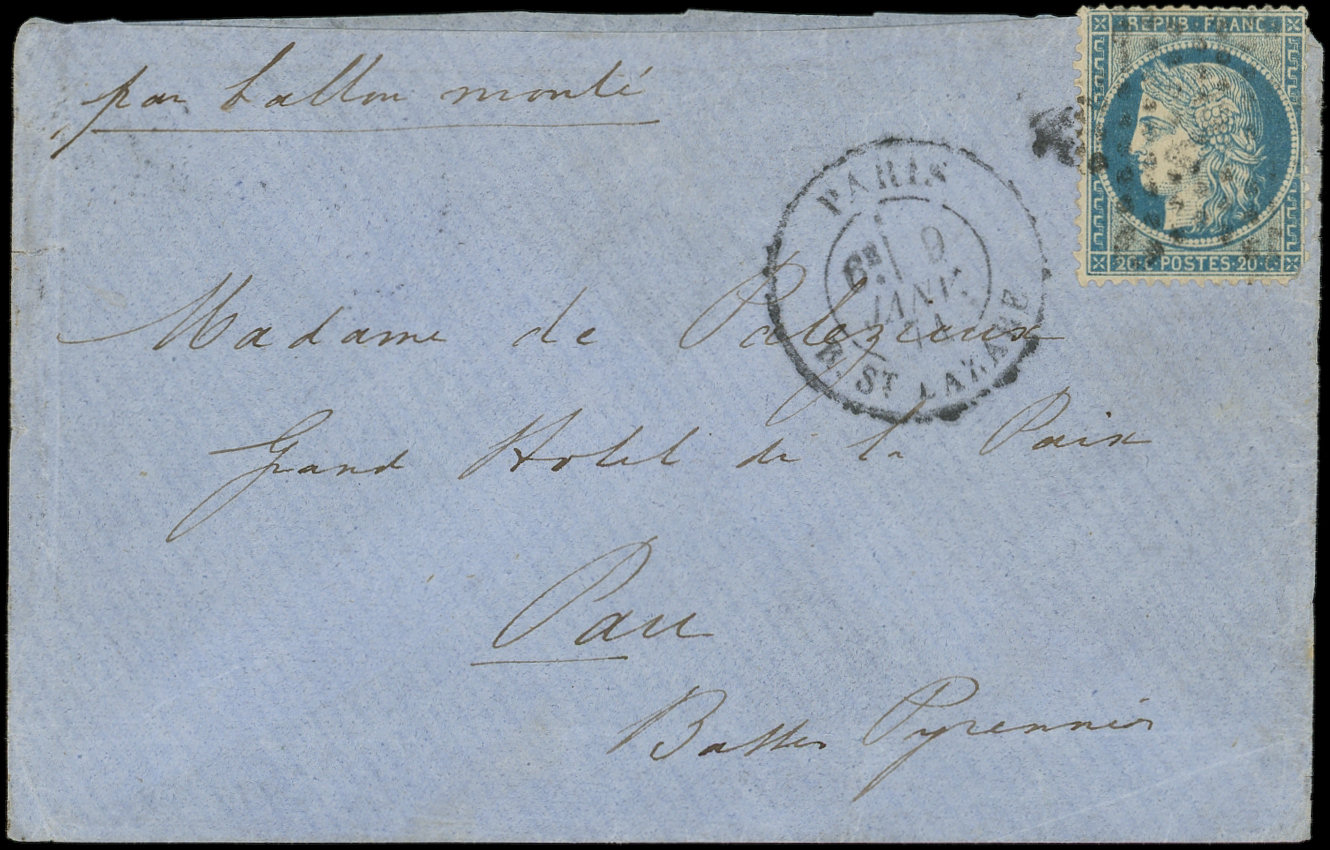 par ballon monté
REPUB·FRANC
20·C·POSTES·20·C
PARIS
6E
9
JANV.
71
R. ST LAZARE
Madame de Palézieux
Grand Hotel de la Paix
Pau
Basses Pyrennées